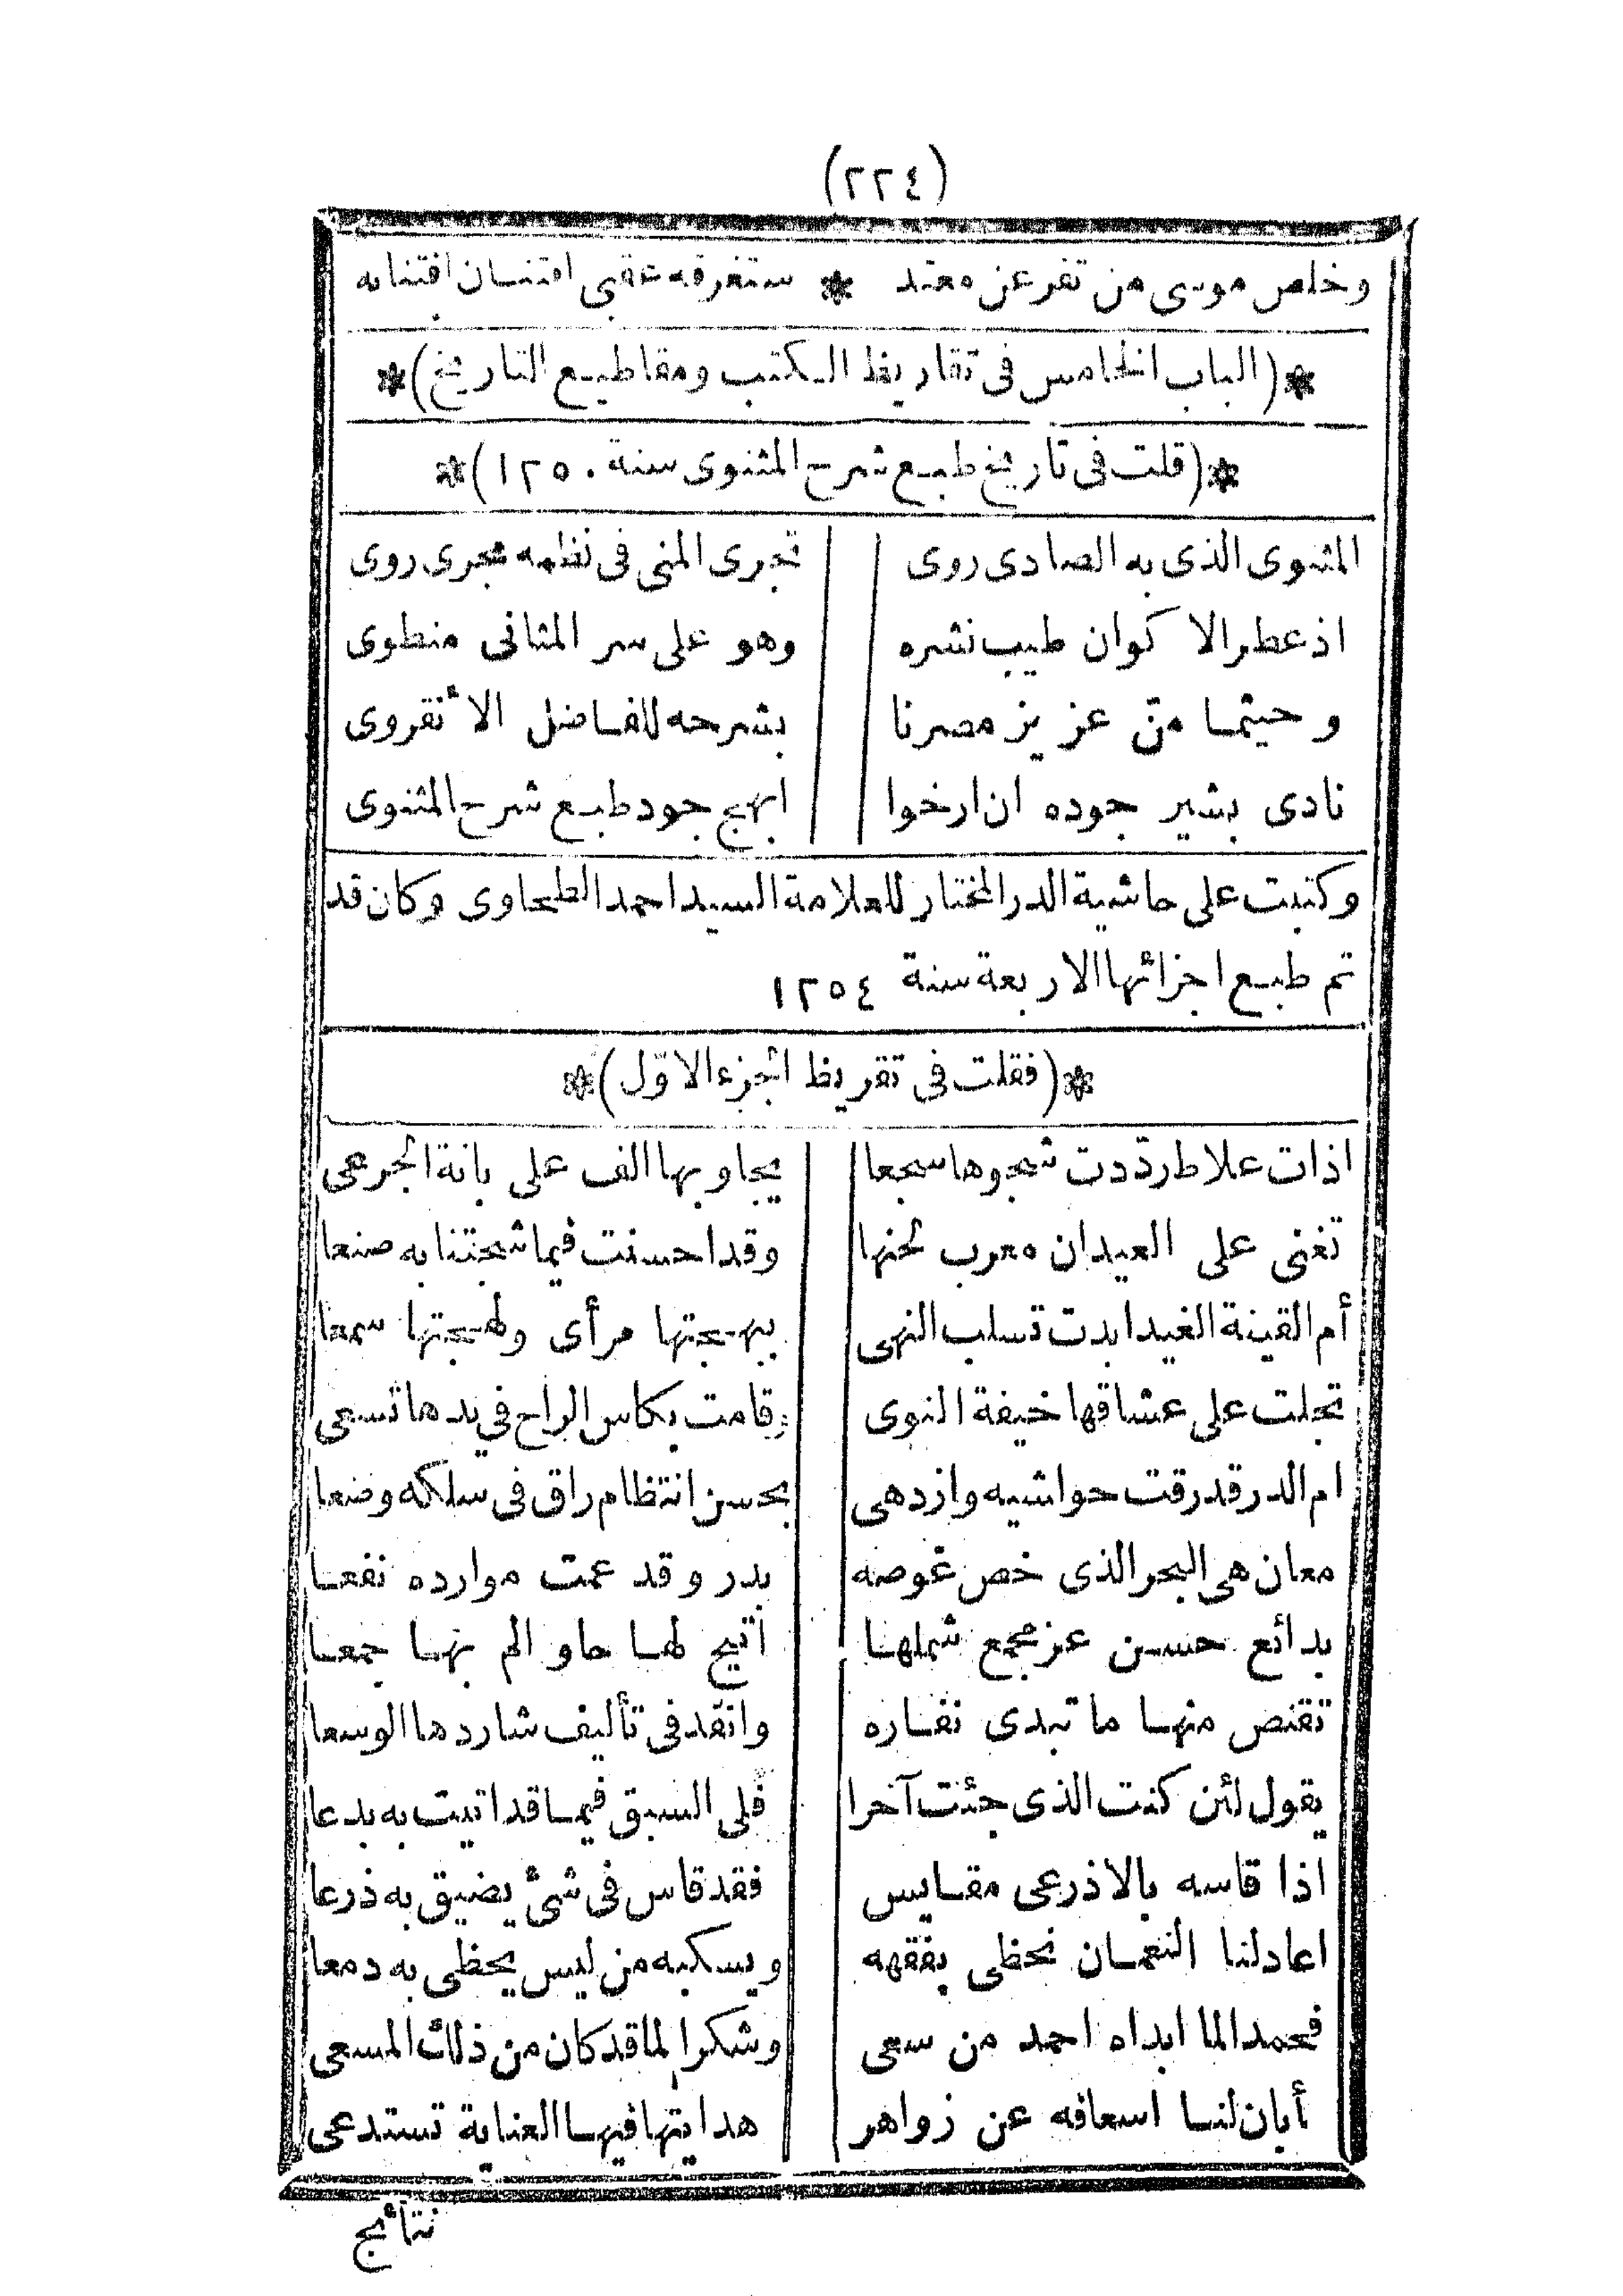 (٢٢٤)
وخلص موسى من تفرعن معتد * ستغرقه عقبى افتنان افتنانه
*(الباب الخامس فى تقاريظ الكتب ومقاطيع التاريخ)*
*(قلت فى تاريخ طبع شرح المثنوى سنة ١٢٥٠)*
المثنوى الذى به الصادى روى تجرى المنى فى نظمه مجرى روى
اذ عطر الاكوان طيب نشره وهو على سر المثانى منطوى
وحيثما منّ عزيز مصرنا بشرحه للفاضل الأنقروى
نادى بشير جوده ان ارخوا ابهج جود طبع شرح المثنوى
وكتبت على حاشية الدر المختار للعلامة السيد احمد الطحاوى وكان قد
تم طبع اجزائها الاربعة سنة ١٢٥٤
*(فقلت فى تقريظ الجزء الاوّل)*
اذات علاط ردّدت شجوها سجعا يجاوبها الف على بانة الجرعى
تغنى على العيدان معرب لحنها وقد احسنت فيما شجتنا به صنعا
أم القينة الغيدا بدت تسلب النهى ببهجتها مرأى ولهجتها سمعا
تجلت على عشاقها خيفة النوى وقامت بكاس الراح فى يدها تسعى
ام الدر قد رقت حواشيه وازدهى بحسن انتظام راق فى سلكه وضعا
معان هى البحر الذى خص غوصه بدر وقد عمت موارده نفعا
بدائع حسن عز مجمع شملها أتيح لها حاو الم بها جمعا
تقنص منها ما تبدى نفاره وانفد فى تأليف شاردها الوسعا
يقول لئن كنت الذى جئت آخرا فلى السبق فيما قد اتيت به بدعا
اذا قاسه بالاذرعى مقايس فقد قاس فى شئ يضيق به ذرعا
اعاد لنا النعمان نحظى بفقهه ويسكبه من ليس يحظى به دمعا
فحمدا لما ابداه احمد من سعى وشكرا لما قد كان من ذلك المسعى
أبان لنا اسعافه عن زواهر هدايتها فيها العناية تستدعى
نتائج